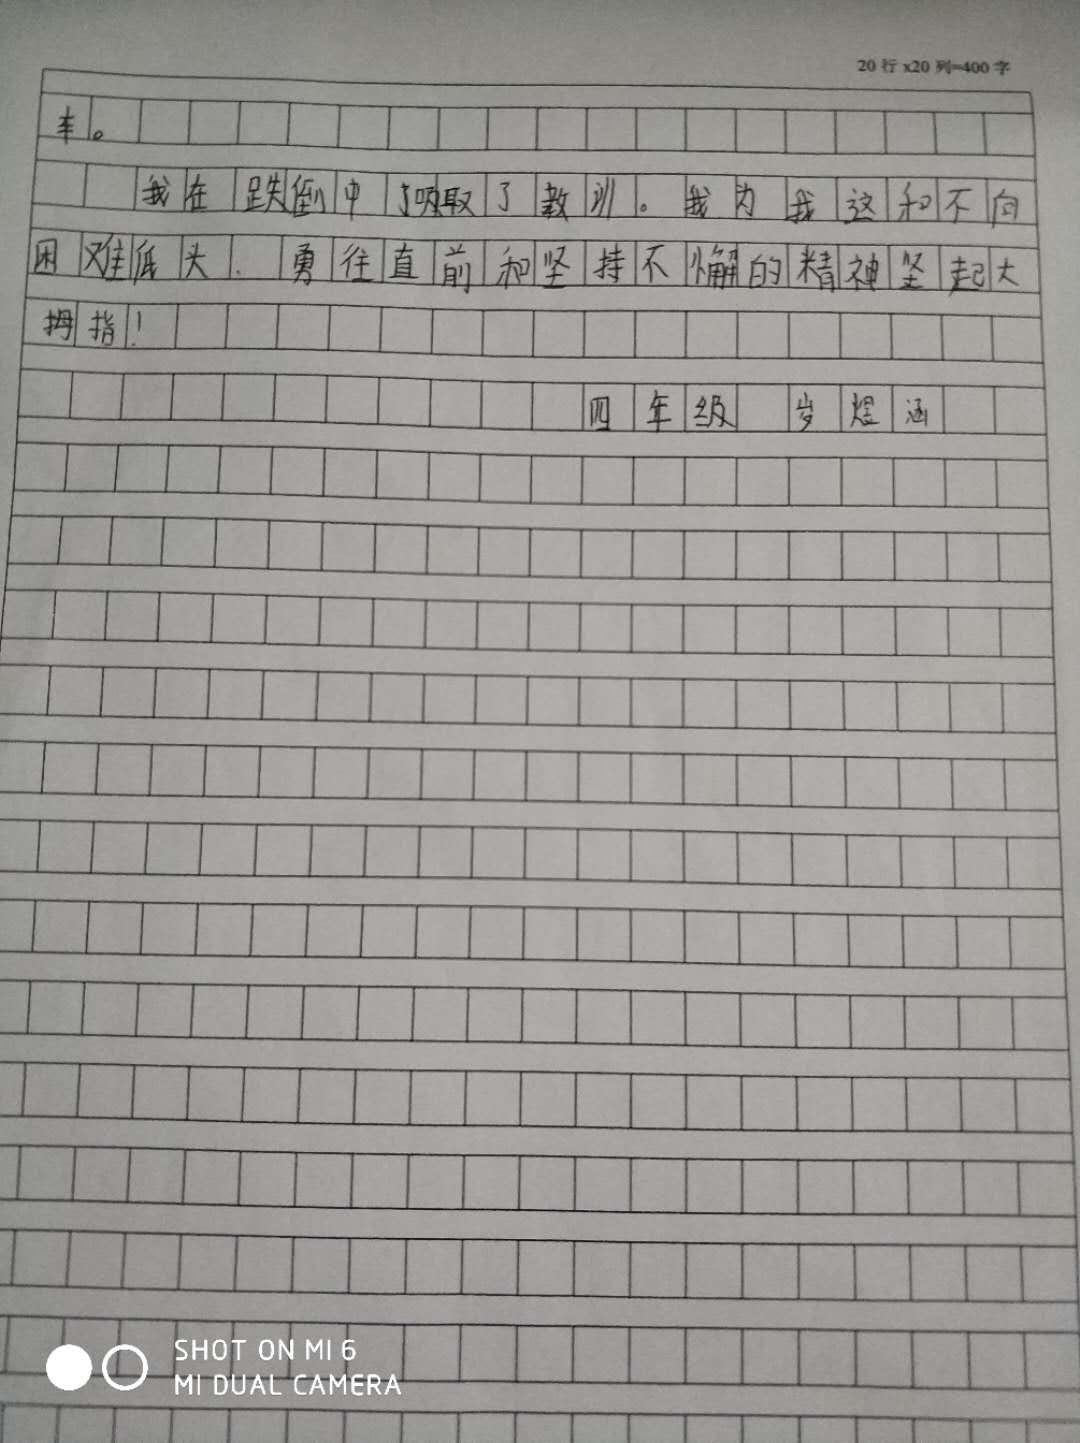 20行x20列=400字
车。
我在跌倒中了吸取了教训。我为我这和不向
困难低头.勇往直前和坚持不懈的精神坚起大
拇指!
四年级 岁煜涵
SHOT ON MI 6
MI DUAL CAMERA